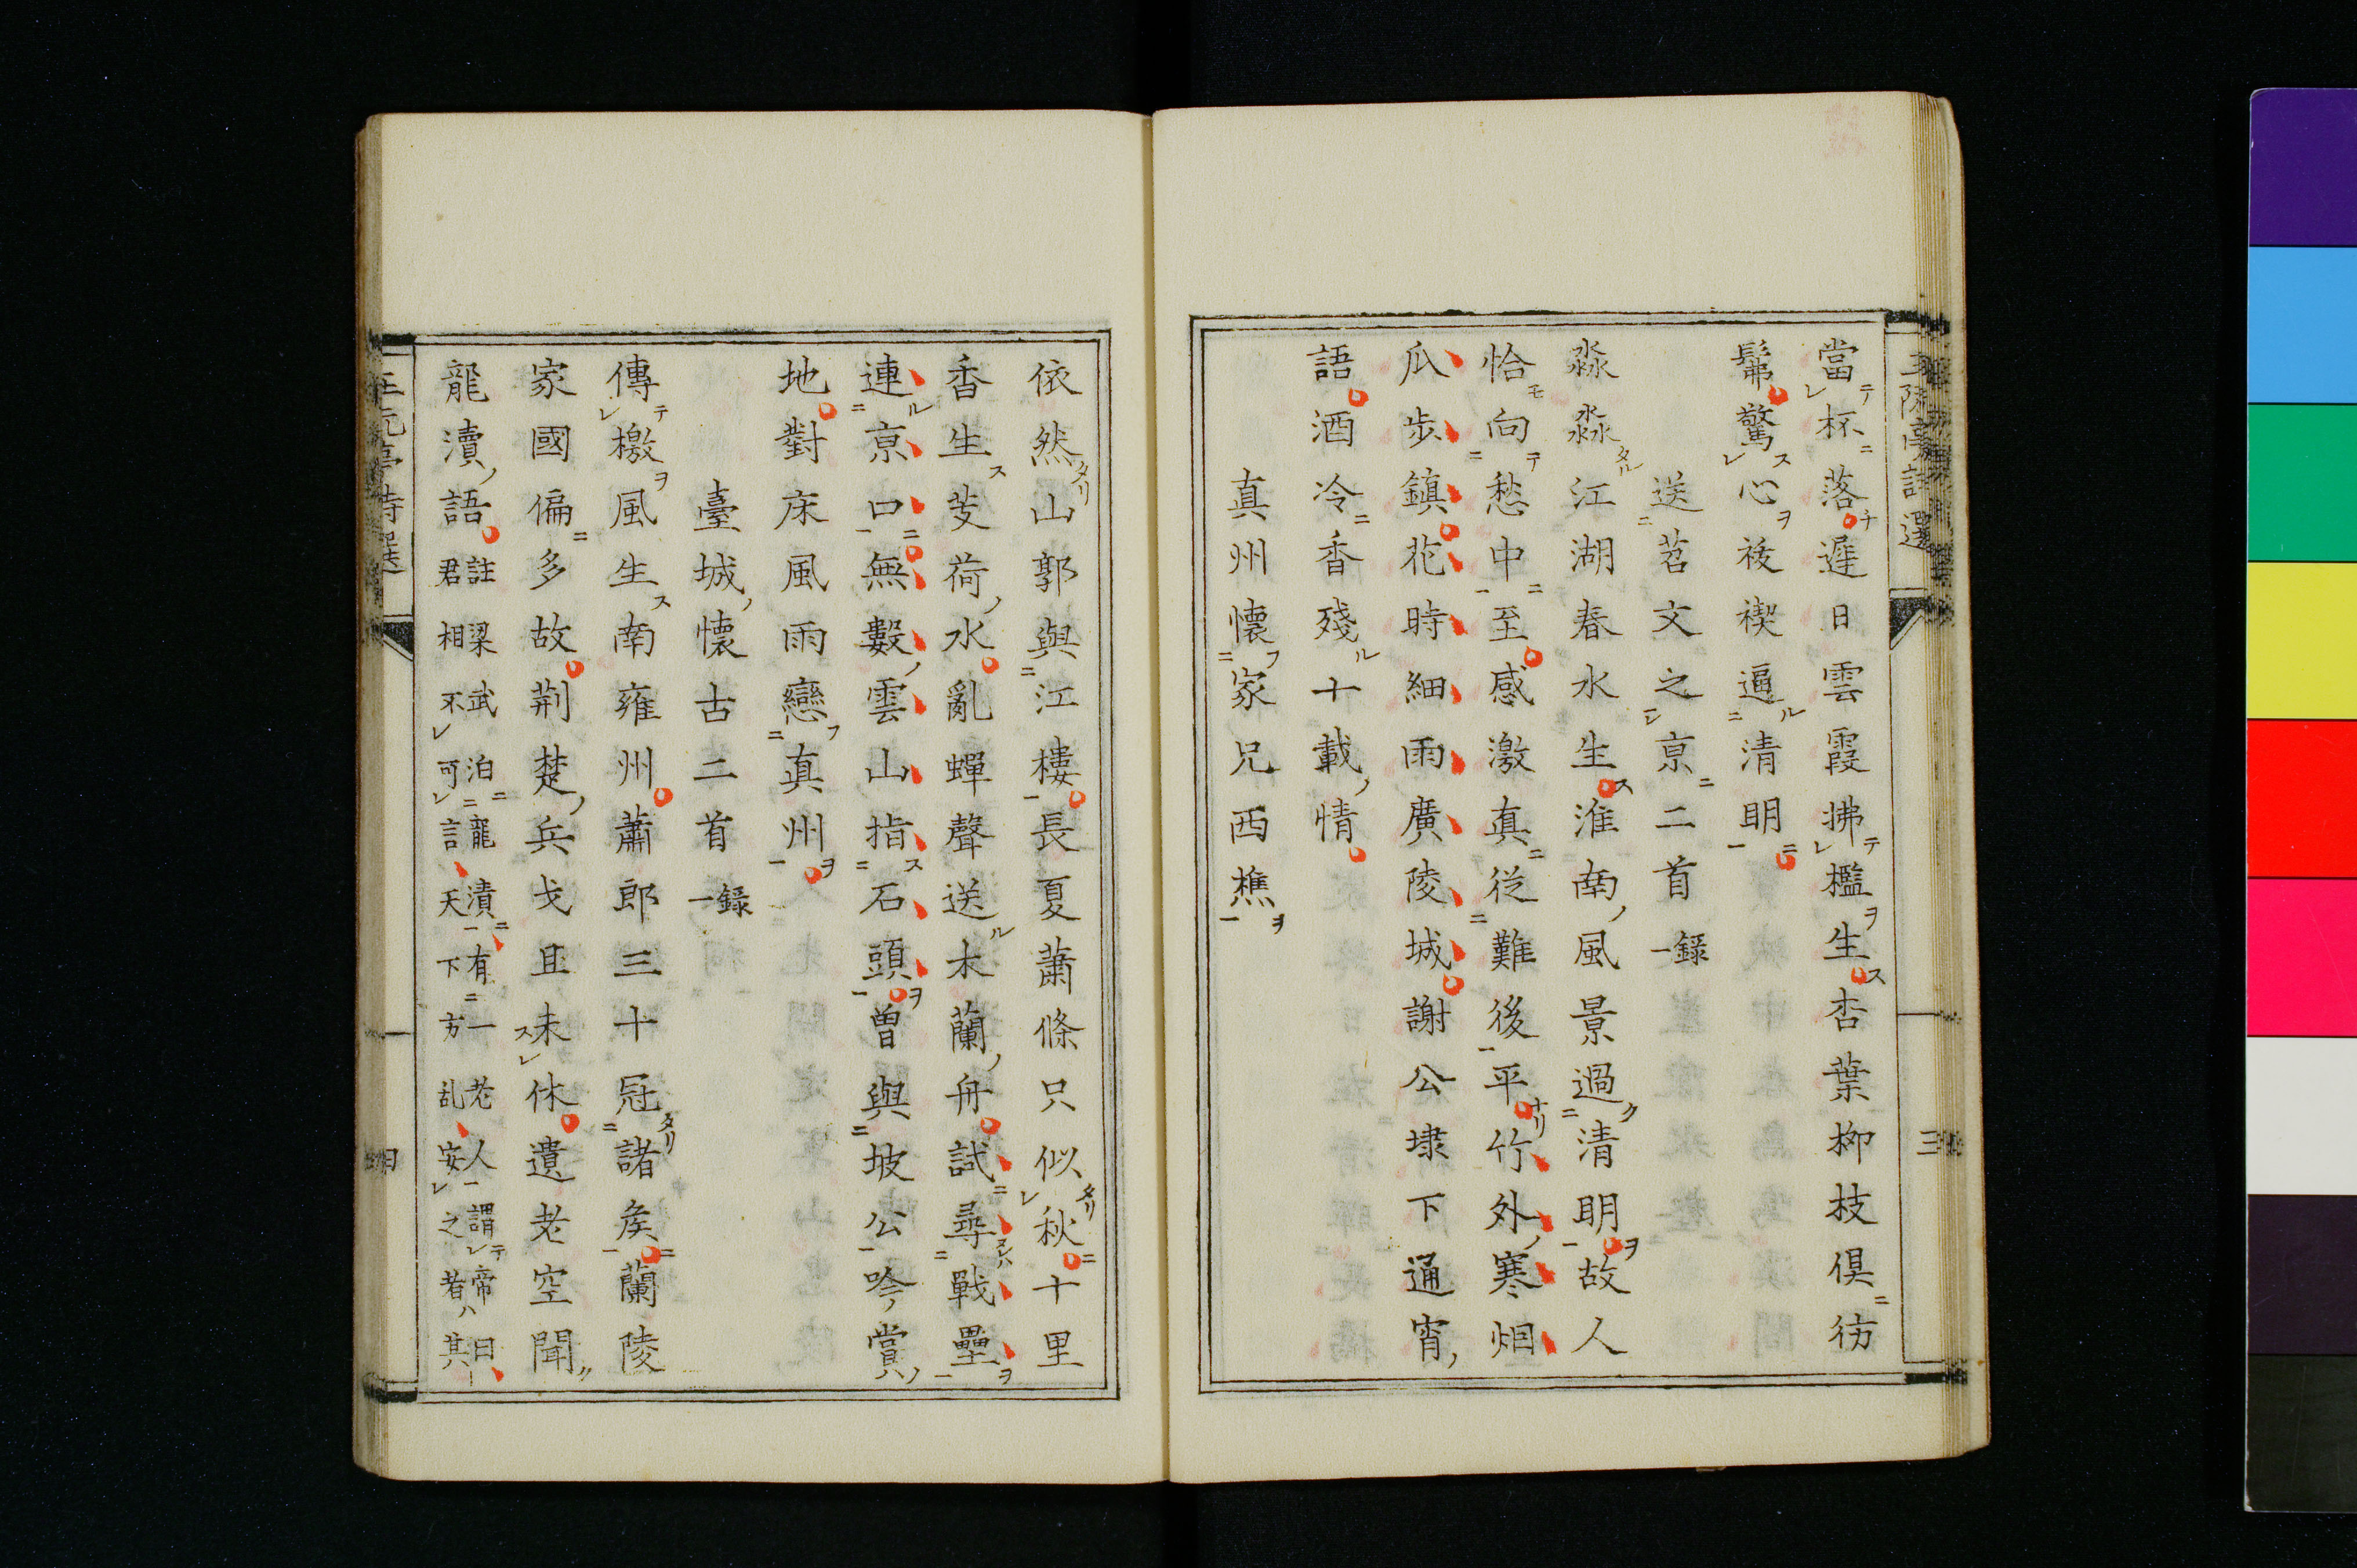 當杯落遲日雲霞拂檻生杏葉柳枝俱彷
髴驚心祓禊逼清明
送苕文之京二首 錄一
淼淼江湖春水生淮南風景過清明故人
恰向愁中至感激真從難後平竹外寒烟
瓜步鎮花時細雨廣陵城謝公埭下通宵
語酒冷香殘十載情
真州懷家兄西樵
三
依然山郭與江樓長夏蕭條只似秋十里
香生芰荷水亂蟬聲送木蘭舟試尋戰壘
連京口無數雲山指石頭曾與坡公吟賞
地對床風雨戀真州
臺城懷古二首 錄一
傳檄風生南雍州蕭郎三十冠諸矦蘭陵
家國偏多故荆楚兵戈且未休遺老空聞
龍瀆語 註梁武泊龍瀆有一老人謂帝曰
君相不可言天下方乱安之者其